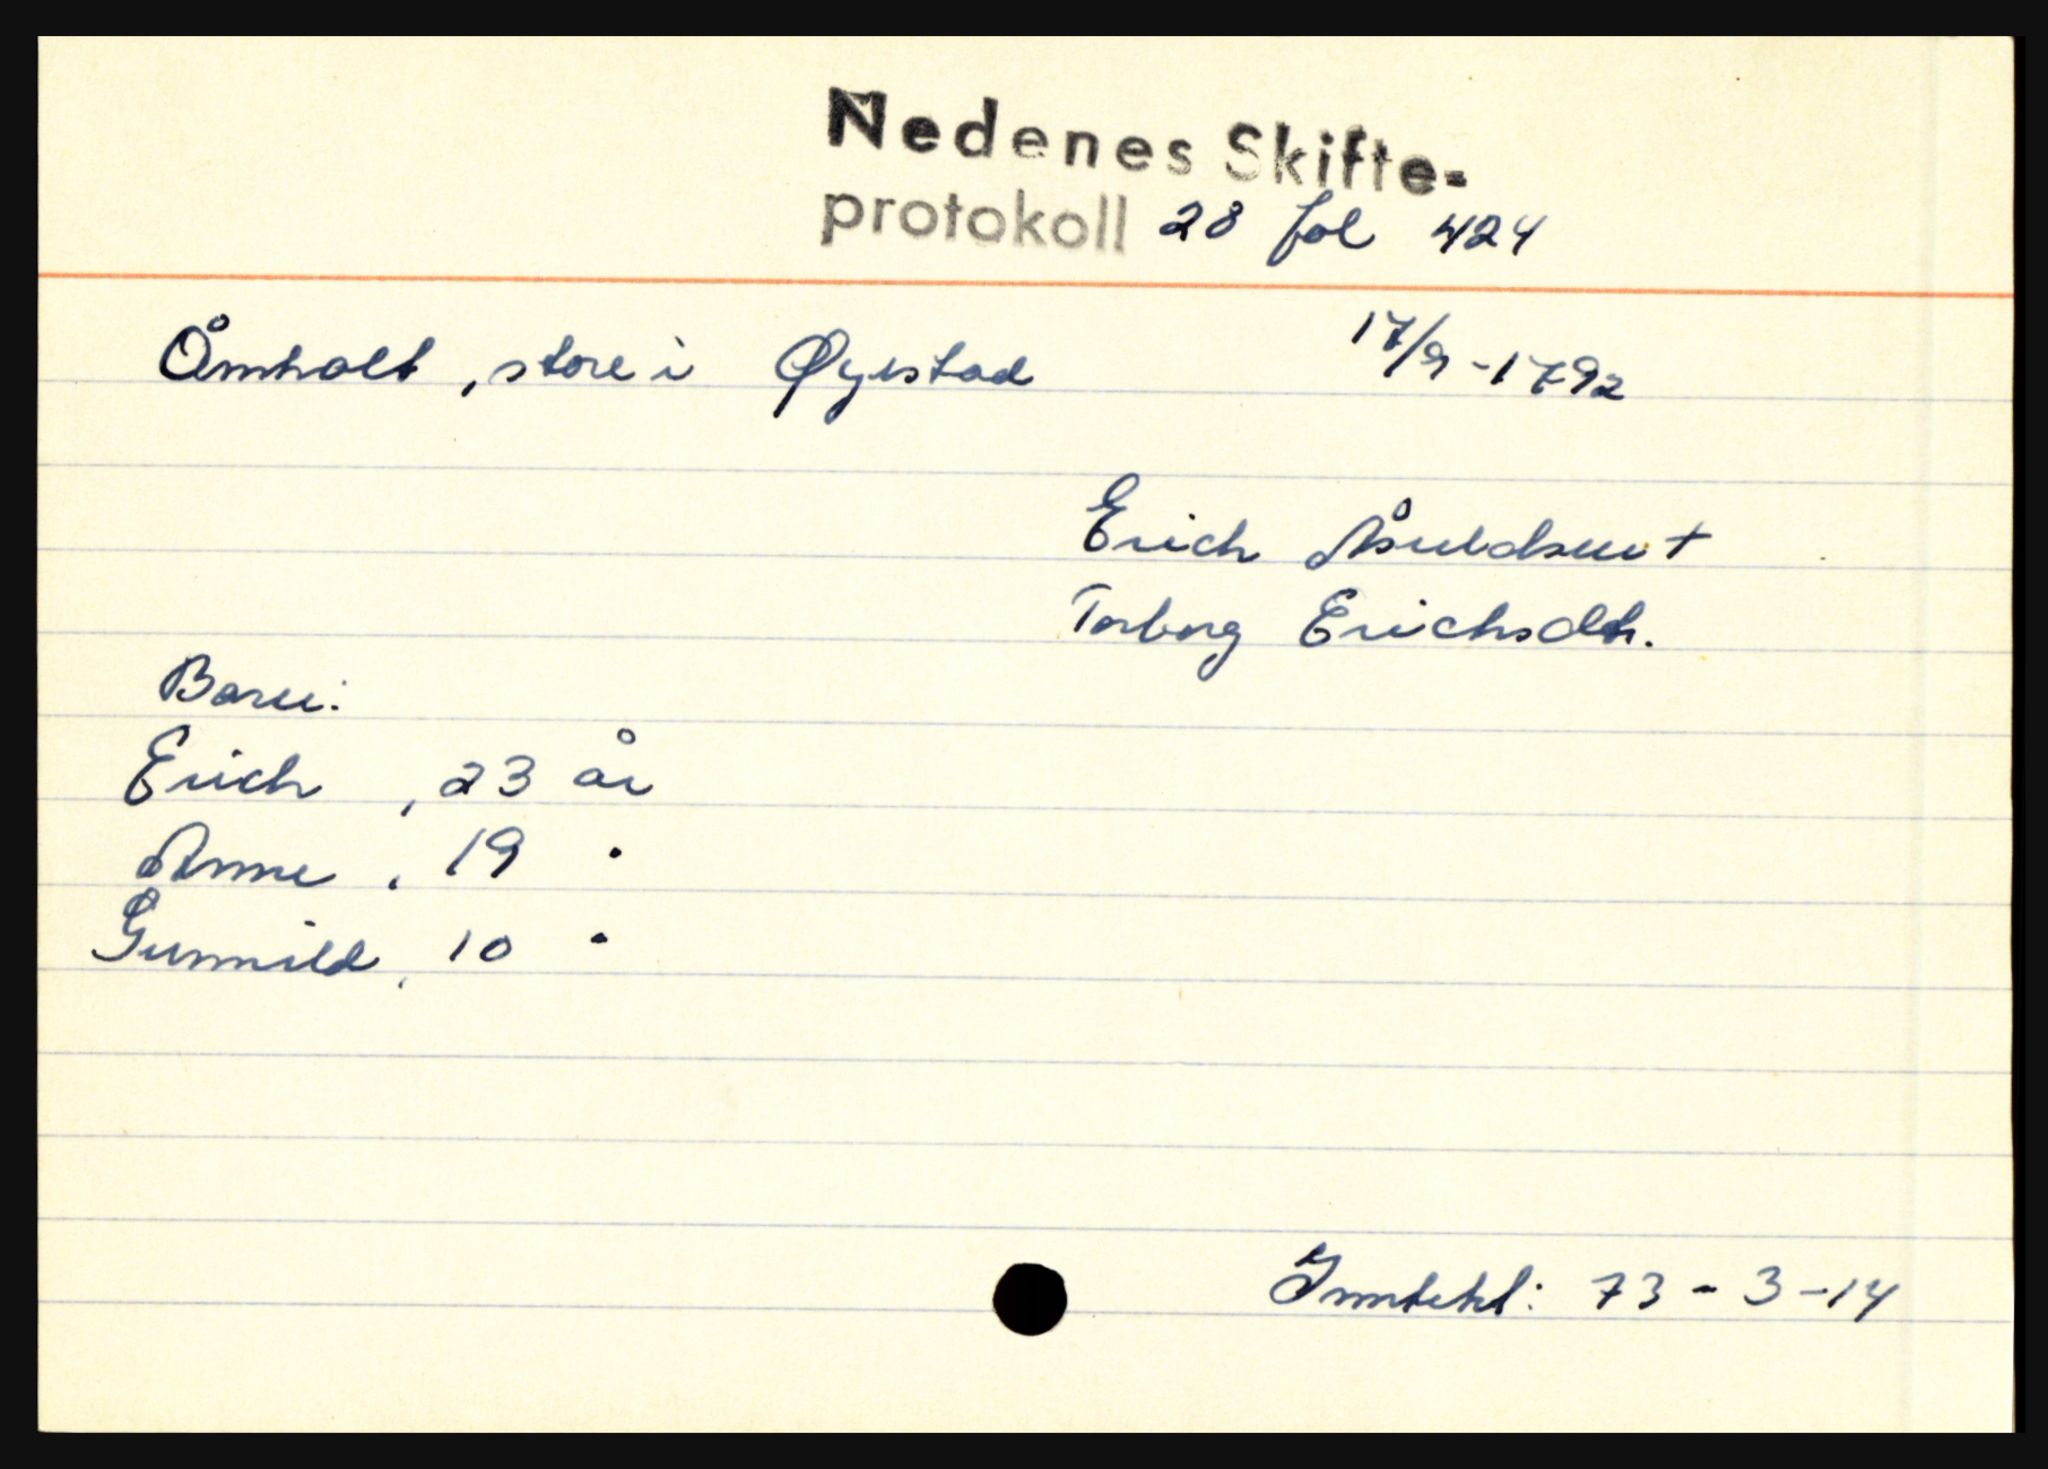 Nedenes Skifte-
protokoll 28 fol 424
Åmholt, store i Øyestad 17/9-1792
Erich Åsuldsen †
Torborg Erichsdtr.
Barn:
Erich, 23 år
Anne, 19 "
Gunnild, 10 "
Inntekt: 73-3-14